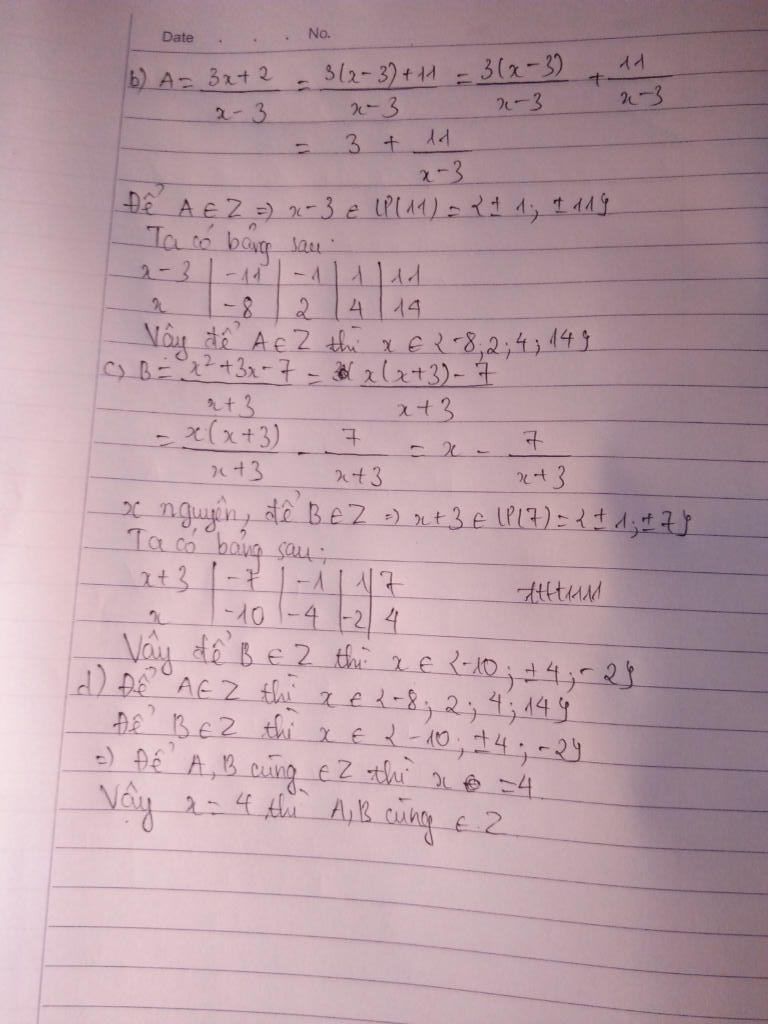 Date . . . No.
b) A = \frac{3x+2}{x-3} = \frac{3(x-3)+11}{x-3} = \frac{3(x-3)}{x-3} + \frac{11}{x-3}
= 3 + \frac{11}{x-3}
Để A ∈ Z => x-3 ∈ Ư(11) = {± 1; ± 11}
Ta có bảng sau:
x-3 | -11 | -1 | 1 | 11
x | -8 | 2 | 4 | 14
Vậy để A ∈ Z thì x ∈ {-8; 2; 4; 14}
c) B = \frac{x²+3x-7}{x+3} = \frac{x(x+3)-7}{x+3}
= \frac{x(x+3)}{x+3} - \frac{7}{x+3} = x - \frac{7}{x+3}
x nguyên, để B ∈ Z => x+3 ∈ Ư(7) = {± 1; ± 7}
Ta có bảng sau:
x+3 | -7 | -1 | 1 | 7
x | -10 | -4 | -2 | 4
Vậy để B ∈ Z thì x ∈ {-10; ±4; -2}
d) Để A ∈ Z thì x ∈ {-8; 2; 4; 14}
Để B ∈ Z thì x ∈ {-10; ±4; -2}
=) Để A, B cùng ∈ Z thì x = 4
Vậy x = 4 thì A, B cùng ∈ Z